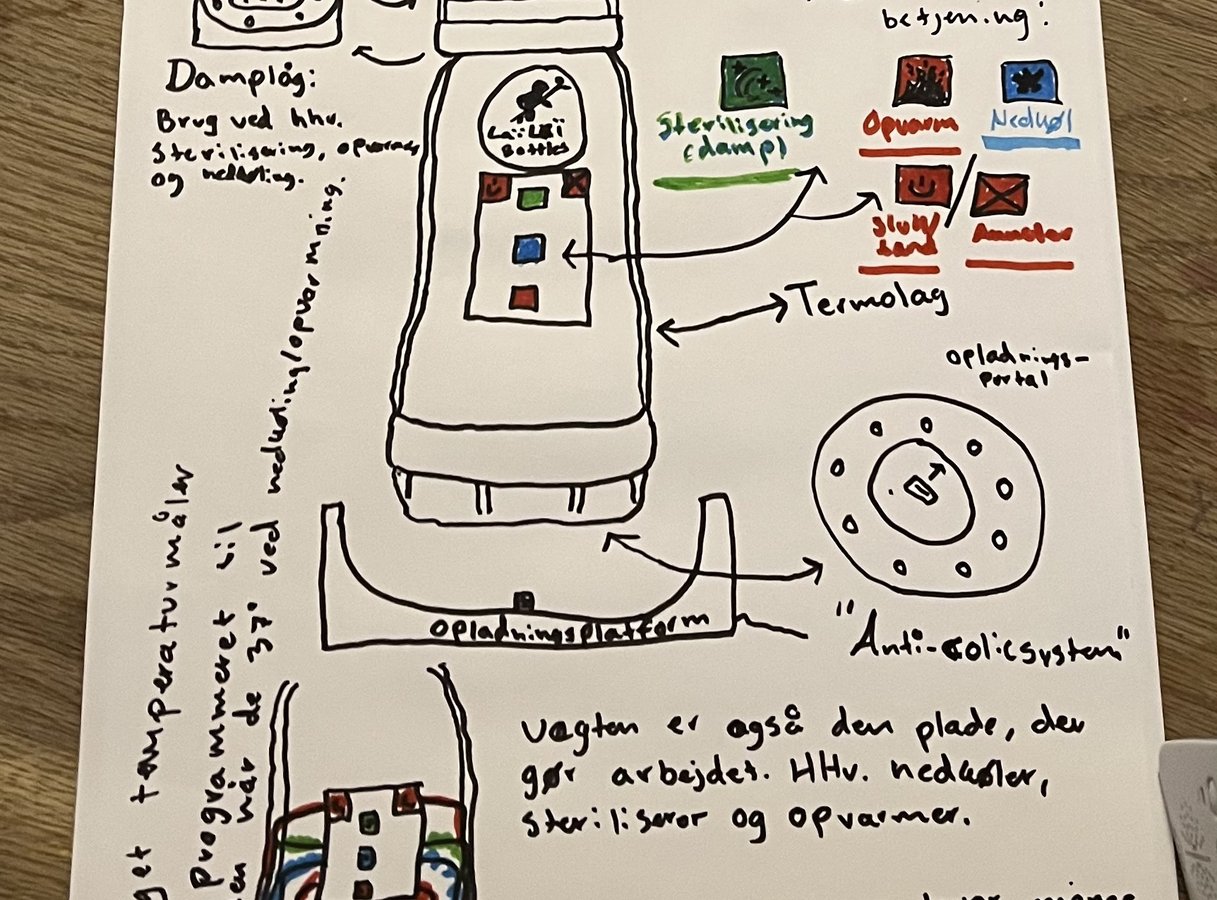 betjening:
Damplåg:
Brug ved hhv.
Sterilisering, opvarmer
og nedkøling.
Bottles
Sterilisering
(damp)
Opvarm
Nedkøl
Sluk/
tænd
Annuller
Termolag
opladnings-
portal
opladningsplatform
"Anti-colicsystem"
Vægten er også den plade, der
gør arbejdet. HHv. nedkøler,
steriliserer og opvarmer.
temperaturmåler
Programmeret til
når de 37° ved nedkøling/opvarmning.